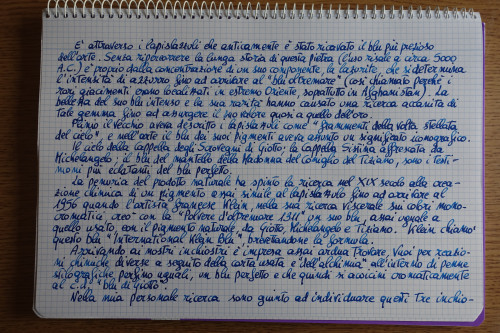 E' attraverso i lapislazzuli che anticamente è stato ricavato il blu più prezioso
dell'arte. Senza ripercorrere la lunga storia di questa pietra (l'uso risale a circa 5000
A.C.) è proprio dalla concentrazione di un suo componente, la lazurite, che si determina
l'intensità di azzurro fino ad arrivare al "blu oltremare" (così chiamato perché i
rari giacimenti erano localizzati in estremo Oriente, soprattutto in Afghanistan). La
bellezza del suo blu intenso e la sua rarità hanno causato una ricerca accanita di
tale gemma fino ad assurgere il suo valore quasi a quello dell'oro.
Plinio il Vecchio aveva descritto i lapislazzuli come "frammenti della volta stellata
del cielo" e nell'arte il blu dai suoi pigmenti aveva assunto un significato iconografico.
Il cielo della Cappella degli Scrovegni di Giotto; la Cappella Sistina affrescata da
Michelangelo; il blu del mantello della Madonna del coniglio del Tiziano, sono i testi-
moni più eclatanti del blu perfetto.
La penuria del prodotto naturale ha spinto la ricerca nel XIX secolo alla crea-
zione chimica di un pigmento assai simile al lapislazzulo fino ad arrivare al
1956 quando l'artista francese Klein, nella sua ricerca viscerale sui colori mono-
cromatici creò con la "Polvere d'oltremare 1311" un suo blu, assai uguale a
quello usato, con il pigmento naturale, da Giotto, Michelangelo e Tiziano. Klein chiamò
questo blu "International Klein Blu", brevettandone la formula.
Arrivando ai nostri inchiostri è impresa assai ardua trovare, vuoi per reazio-
ni chimiche diverse a seguito della carta usata e "dell'alchimia" all'interno di penne
stilografiche perfino uguali, un blu perfetto e che quindi si avvicini cromaticamente
al c.d. "Blu di Giotto".
Nella mia personale ricerca sono giunto ad individuare questi tre inchio-